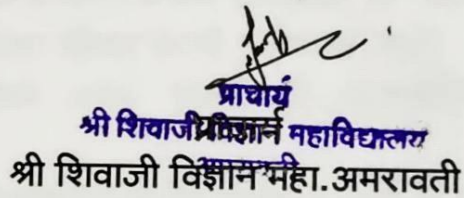 प्राचार्य
श्री शिवाजी विज्ञान महाविद्यालय
प्राचार्य
श्री शिवाजी विज्ञान महा.अमरावती